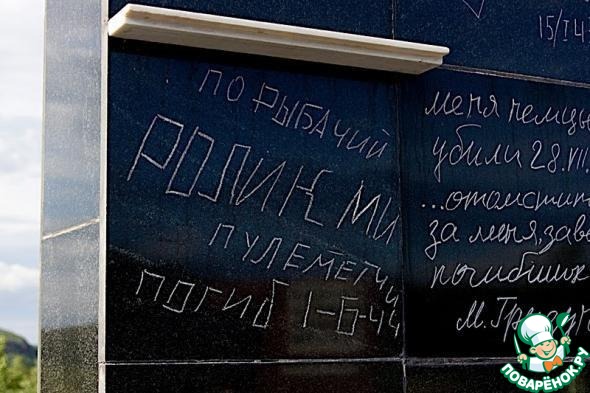 ПО РЫБАЧИЙ
РОЛИК МИ
ПУЛЕМЕТЧИ
ПОГИБ 1-6-44
15/I 43
меня немцы
убили 28.VII.
...отомстит
за меня, заве
погибших
М. Гр
ПОВАРЁНОК.РУ